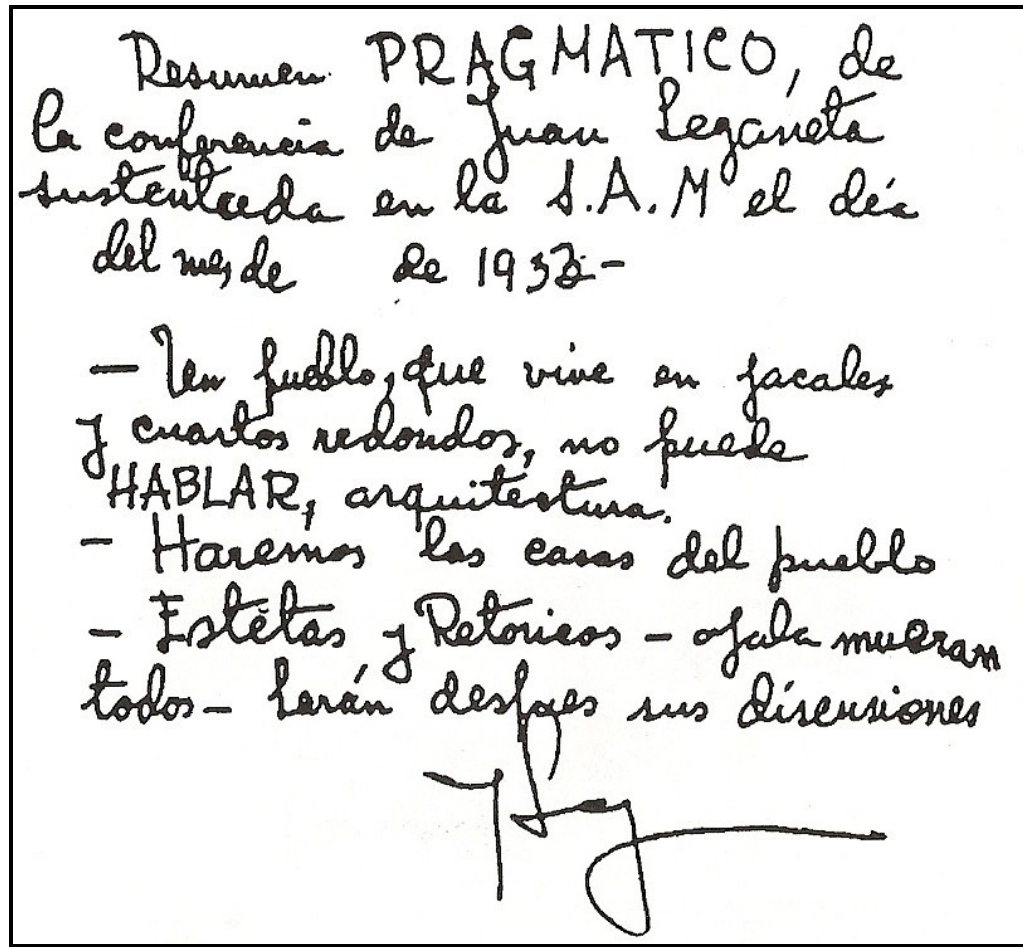 Resumen PRAGMATICO, de
la conferencia de Juan Legarreta
sustentada en la S.A.M el día
del mes de de 1933-
— Un pueblo, que vive en jacales
y cuartos redondos, no puede
HABLAR, arquitectura.
- Haremos las casas del pueblo
- Estetas y Retoricos - ojala mueran
todos - harán despues sus discusiones